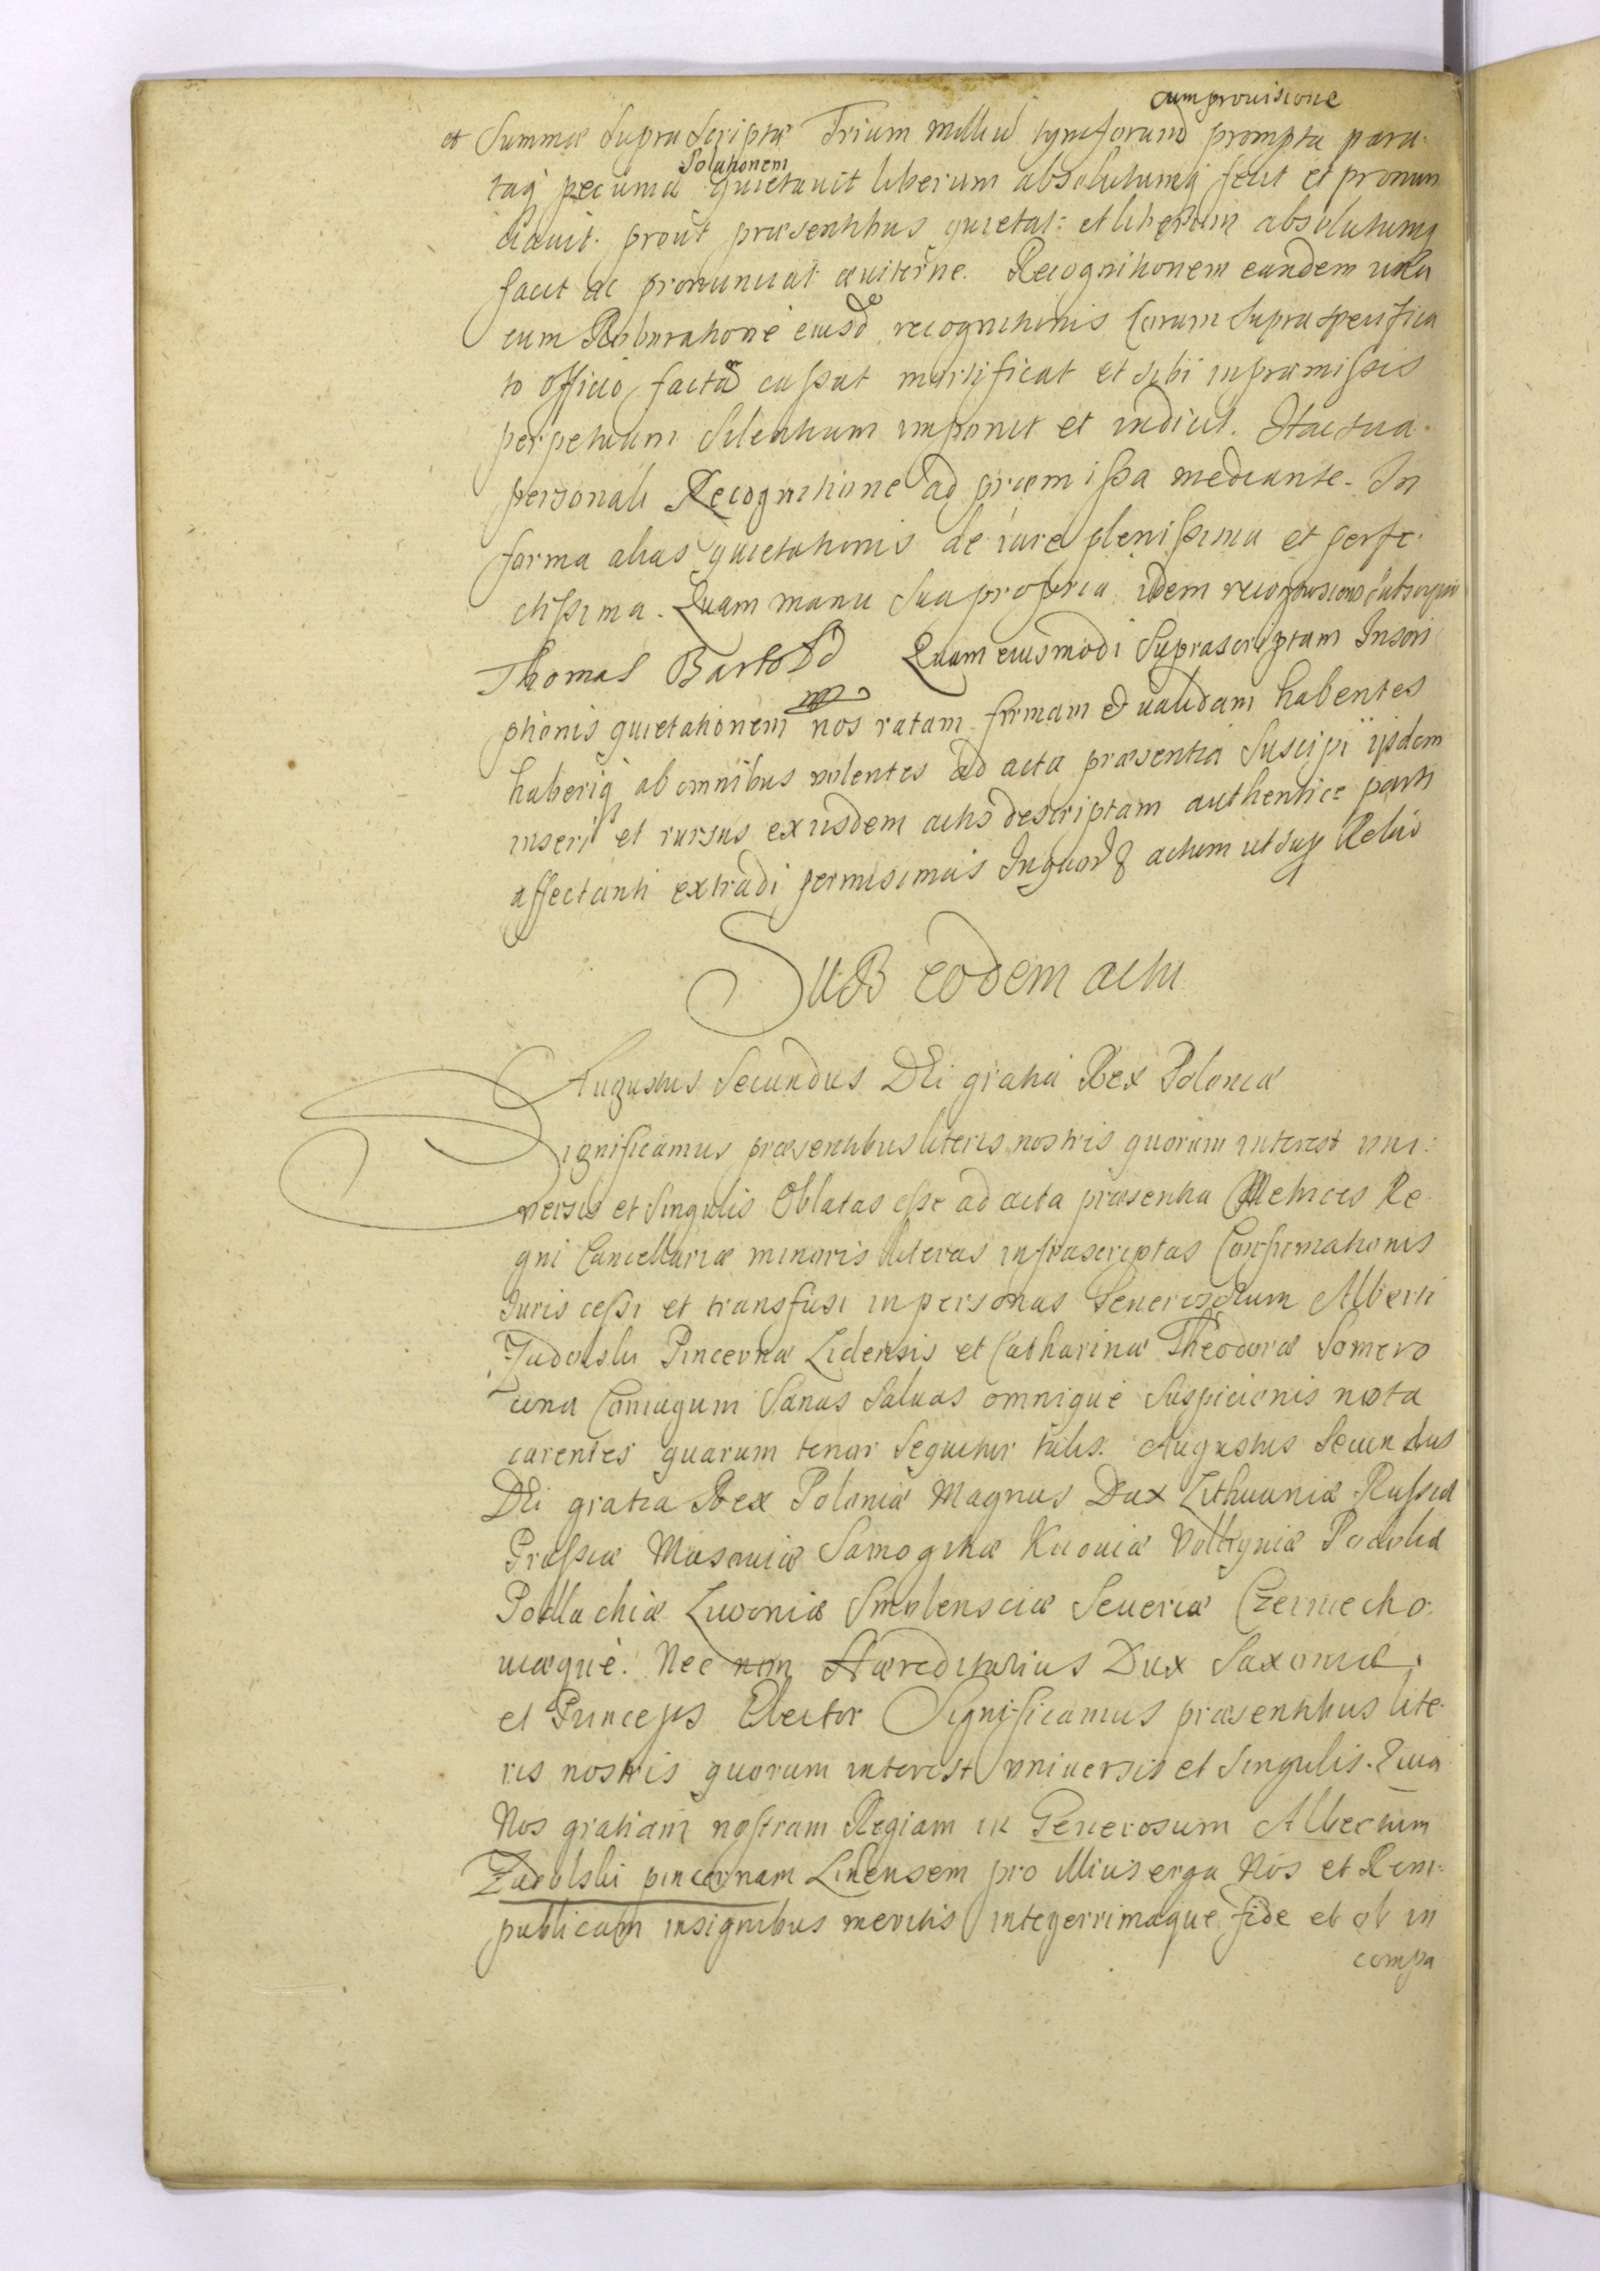 cum prouisione
et Summæ supra scriptæ Trium milliū tymforum prompta para-
Solutionem
taq pecunia quietauit liberum absolutumq fecit et pronun
ciauit. prout præsentibus quietat: et liberum absolutumq
facit ac pronunciat æuiterne. Recognitionem eandem una
cum Roboratione eiusd recognitionis coram supra specifica
to officio facta cassat mortificat et sibi in præmissis
perpetuum silentium imponit et indicit. Hac sua
personali Recognitione ad præmissa mediante. In
forma alias quietationis de iure plenissima et perfe-
ctissima. Quam manu sua propria idem recognoscens subscripsit
Thomas Quam eiusmodi Suprascriptam Inscri
ptionis quietationem nos ratam firmam et ualidam habentes
haberiq ab omnibus uolentes ad acta præsentia Suscipi ijsdem
inseri et rursus ex iisdem actis descriptam authentice parti
affectanti extradi permisimus In quor actum ut sup
Sub eodem actu
Augustus Secundus DEi gratia Rex Poloniæ
Significamus præsentibus literis nostris quorum interest uni-
uersis et singulis Oblatas esse ad acta præsentia Metrices Re-
gni Cancellariæ minoris literas infrascriptas Confirmationis
Iuris cessi et transfusi in personas Generosorum Alberti
Zudolski Pincernæ Lidensis et Catharinæ Theodoræ Somero
Coniugum Sanas Saluas omnique suspicionis nota
carentes quarum tenor sequitur talis. Augustus Secundus
DEi gratia Rex Poloniæ Magnus Dux Lithuaniæ Russiæ
Prussiæ Masouiæ Samogitiæ Kiouiæ Volhyniæ Podoliæ
Podlachiæ Liuoniæ Smolensciæ Seueriæ Czerniecho-
uiæque. Nec non Hæreditarius Dux Saxoniæ
et Princeps Elector Significamus præsentibus lite-
ris nostris quorum interest uniuersis et singulis. Quia
Nos gratiam nostram Regiam in Generosum Albertum
Zudolski pincernam Lidensem pro illius erga Nos et Rem-
publicam insignibus meritis integerrimaque fide et ob in
compa